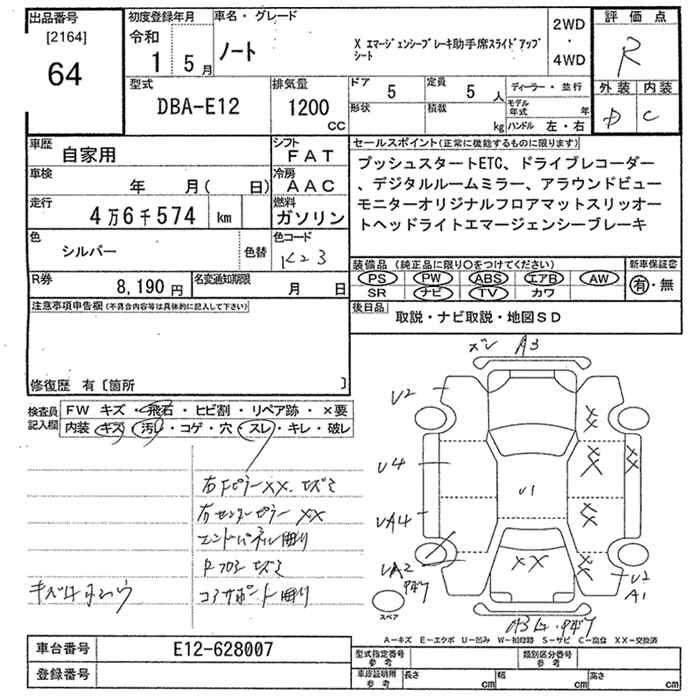 出品番号
[2164]
64
初度登録年月
令和
1 5月
車名・グレード
ノート
X エマージェンシーブレーキ助手席スライドアップ
シート
2WD
・
4WD
評価点
R
外装 内装
D C
型式
DBA-E12
排気量
1200
CC
ドア 5
定員 5人
形状
積載 kg
ディーラー・並行
モデル年式 年
ハンドル 左・右
車歴
自家用
シフト
FAT
車検
年 月( 日)
冷房
AAC
走行
4万6千574 km
燃料
ガソリン
色
シルバー
色替
色コード
K23
R券
8,190円
名変通知期限
月 日
セールスポイント(正常に機能するものに限ります)
プッシュスタートETC、ドライブレコーダー
、デジタルルームミラー、アラウンドビュー
モニターオリジナルフロアマットスリッオー
トヘッドライトエマージェンシーブレーキ
装備品(純正品に限り〇をつけてください)
新車保証書
PS PW ABS エアB AW
SR ナビ TV カワ
有・無
後日品
取説・ナビ取説・地図SD
注意事項申告欄(不具合内容等は具体的に記入して下さい)
修復歴 有〔箇所 〕
検査員
記入欄
FW キズ・飛石・ヒビ割・リペア跡・×要
内装 キズ・汚れ・コゲ・穴・スレ・キレ・破レ
右Fピラーxx.ユズミ
右センターピラーxx
エンドパネル曲り
Rフロアユズミ
コアサポート曲り
ズレ A3
U2
U4
UA4
UA2
U1
xx
xx
xx
xx
xx
xx
xx
U2
A1
スペア
A-キズ E-エクボ U-凹み W-補修跡 S-サビ C-腐食 XX-交換済
車台番号
E12-628007
登録番号
型式指定番号
参考
類別区分番号
参考
車庫証明用
参考
長さ cm
幅 cm
高さ cm